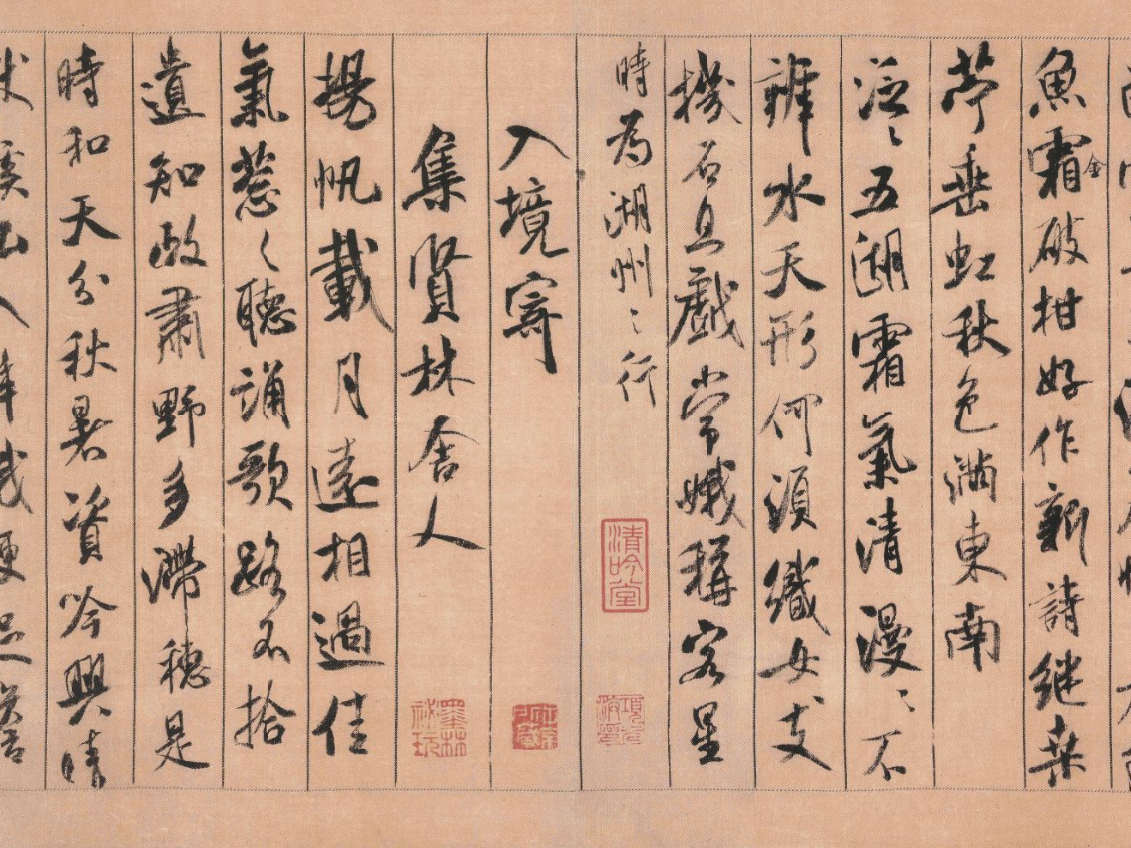 魚霜破柑好作新詩継桒
金
苧垂虹秋色滿東南
泛〻五湖霜氣清漫〻不
辨水天形何須織女支
機石且戲常娥稱客星
時為湖州〻行
清吟堂
入境寄
集賢林舍人
墨林祕玩
揚帆載月遠相過佳
氣葱〻聽誦歌路不拾
遺知政肅野多滯穗是
時和天分秋暑資吟興晴